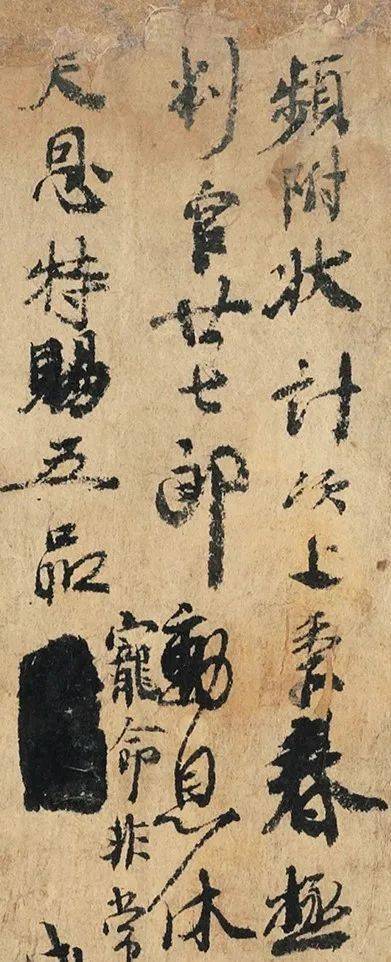 頻附狀計次上春極
判官廿七郎動息休
天恩特賜五品
寵命非常